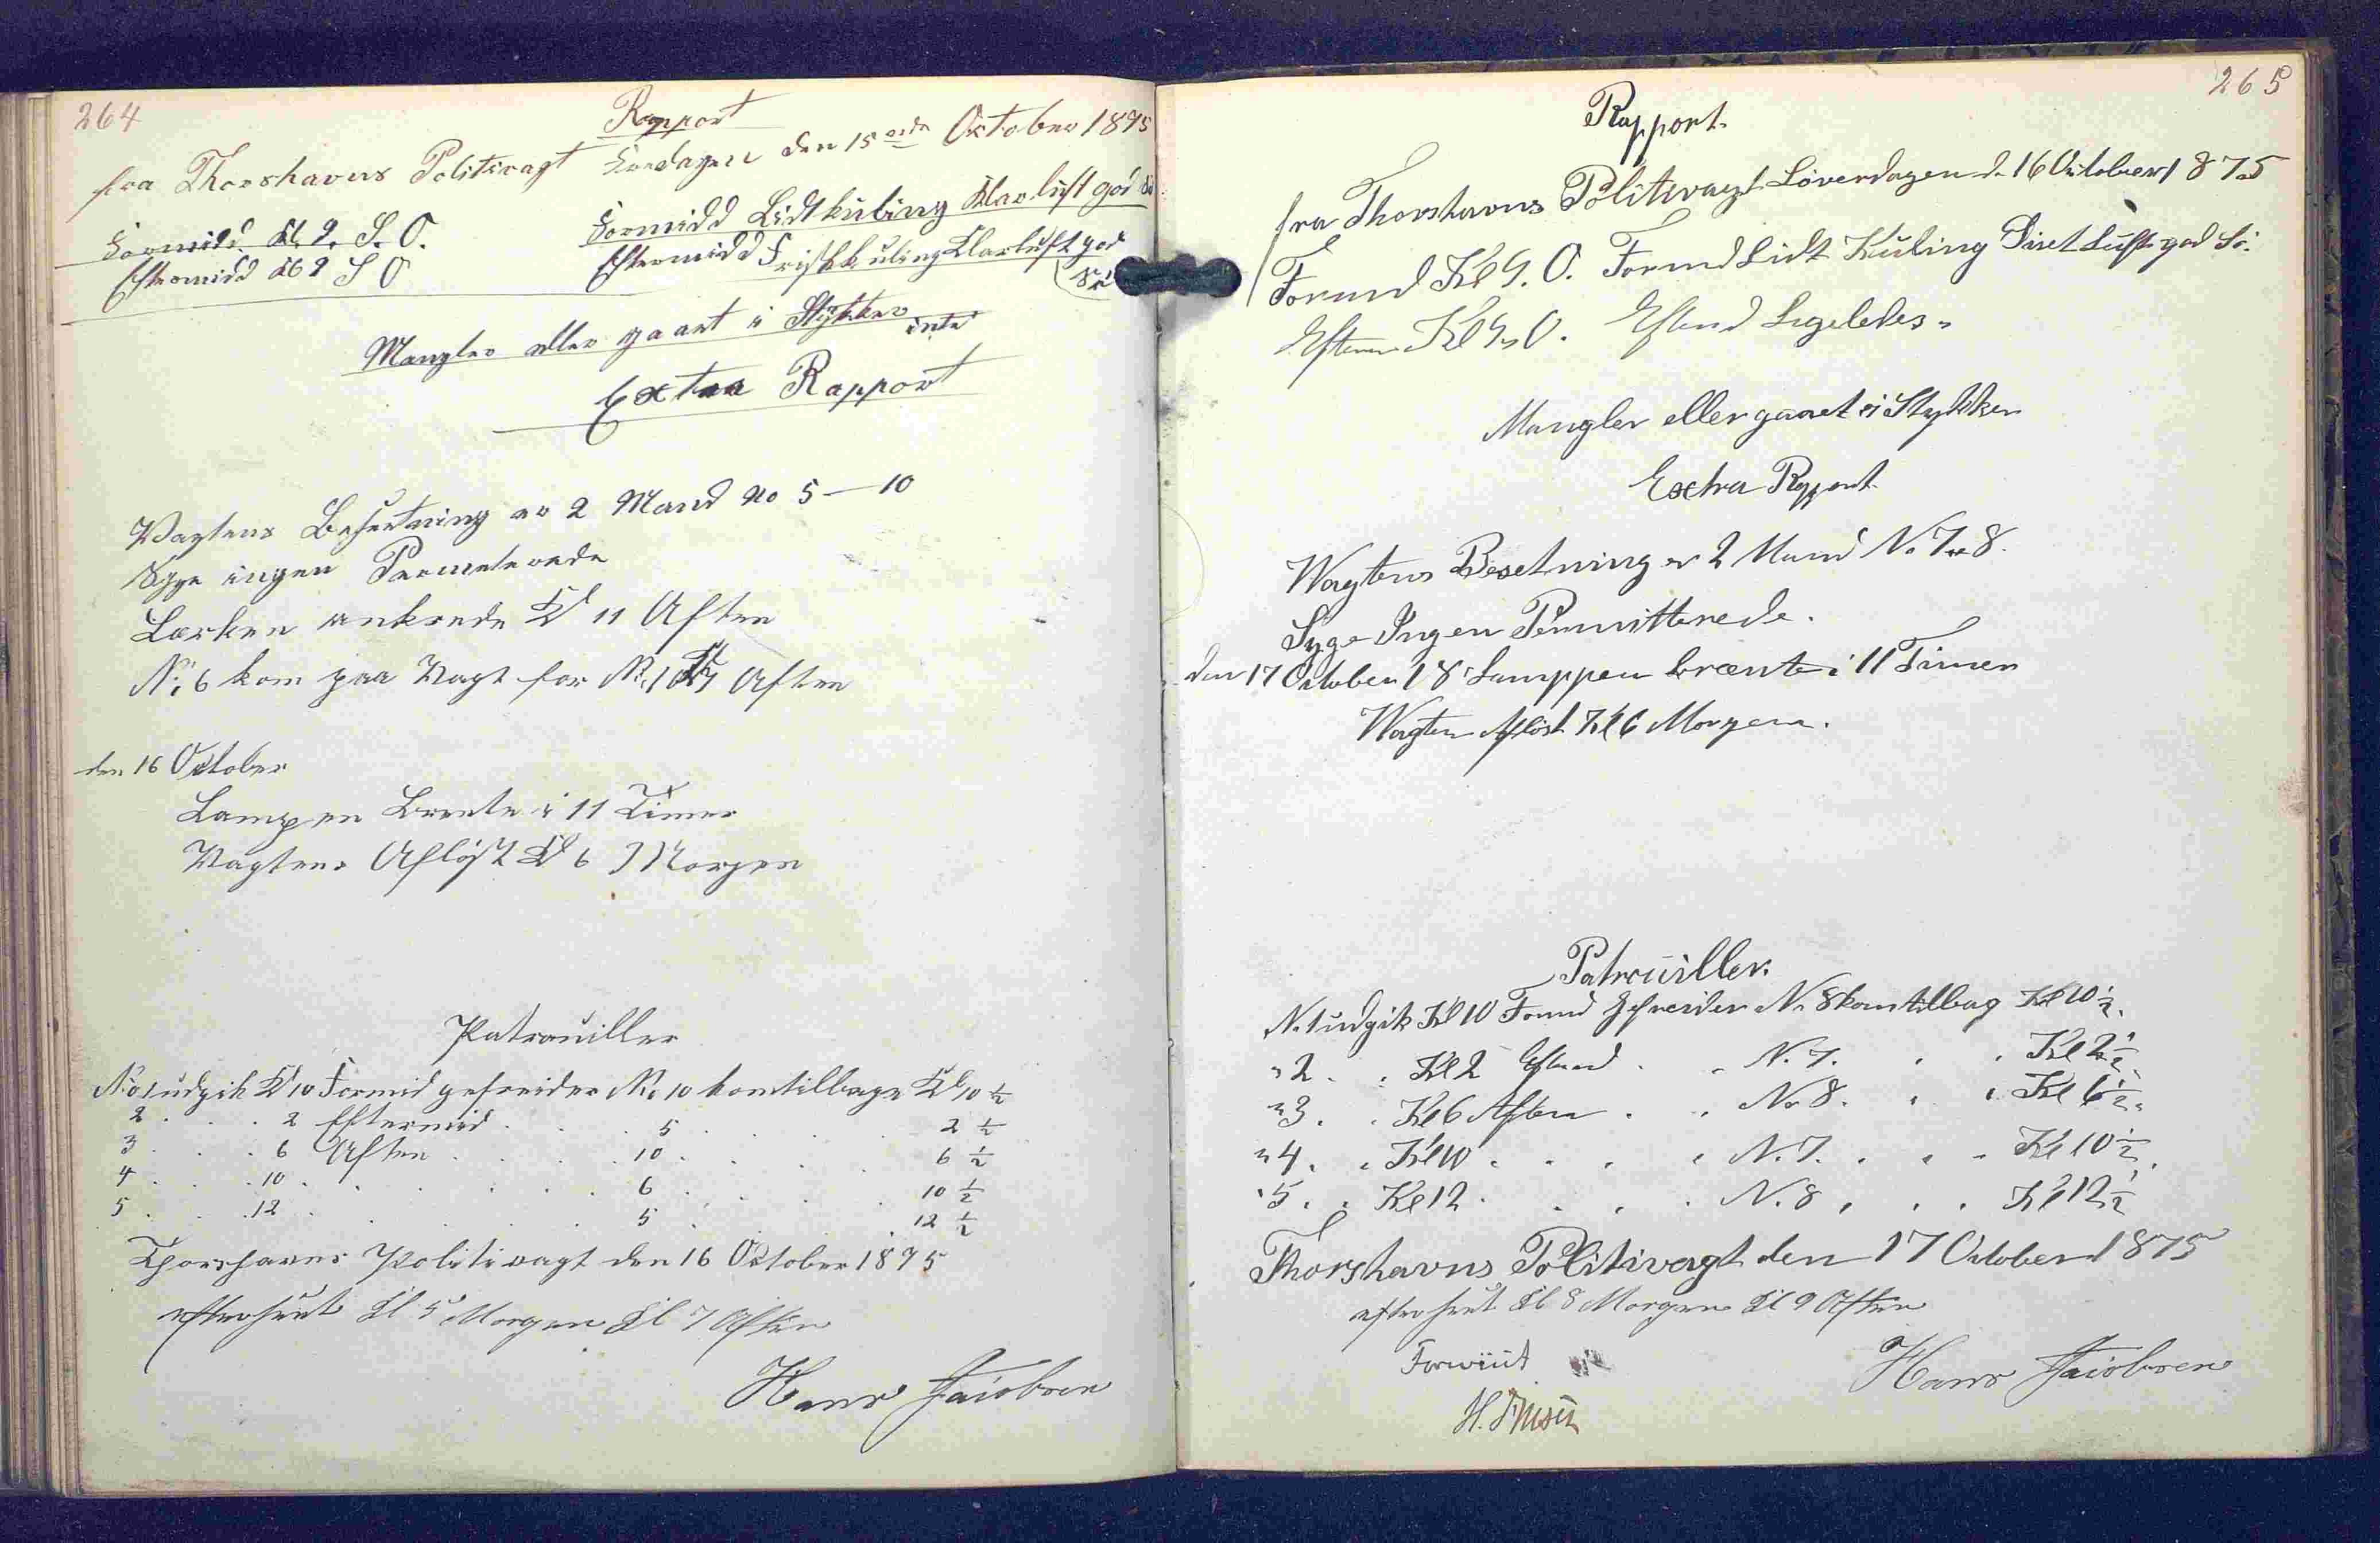 264
Rapport
fra Thorshavns Politivagt Fredagen den 15 October 1875
Formidd Kl 9. S. O. Formidd Lidt kuling Klar luft god Sö
Eftermidd Kl 9 S O Eftermidd Frisk kuling Klar luft god
Sö
Mangler eller gaaet i Stykker intet
Extra Rapport
Vagtens Besætning er 2 Mand No 5 — 10
Syge ingen Permeterede
Lærken ankrede Kl 11 Aften
No 6 kom paa Vagt for No 10 Kl 7 Aften
den 16 October
Lampen Brente i 11 Timer
Vagtens Afløst Kl 6 Morgen
Patrouiller
No 1 udgik Kl 10 Formid gefreider No 10 kom tilbage Kl 10 ½
2 . . . 2 Eftermid . . . 5 . . . 2 ½
3 . . . 6 Aften . . . 10 . . . 6 ½
4 . . . 10 . . . 6 . . . 10 ½
5 . . . 12 . . . 5 . . . 12 ½
Thorshavns Politivagt den 16 October 1875
efterseet Kl 5 Morgen Kl 7 Aften
Hans Jacobsen
265
Rapport.
fra Thorshavns Politivagt Löverdagen d. 16 October 1875
Formd Kl 9. O. Formd Lidt Kuling Luft god Sö.
Efterm Kl 9. O. Eftmd Ligeledes.
Mangler eller gaaet i Stykker
Exchra Rapport
Wagtens Besetning er 2 Mand No 7 & 8.
Syge Ingen Permitterede.
den 17 October 18 Lamppen brænte i 11 Timer
Wagten Aflöst Kl 6 Morgen.
Patrouiller.
N. 1 udgik Kl 10 Formd Gefreider N. 8 kom tilbag Kl 10 ½.
" 2 . . Kl 2 Eftmd . . N. 7. . . Kl 2 ½.
" 3 . . Kl 6 Aften . . No 8. . . Kl 6 ½.
" 4 . . Kl 10 . . . N. 7. . . Kl 10 ½.
" 5 . . Kl 12 . . . N. 8 . . . Kl 12 ½
Thorshavns Politivagt den 17 October 1875
efterseet Kl 8 Morgen Kl 9 Aften
Forviist
Hans Jacobsen